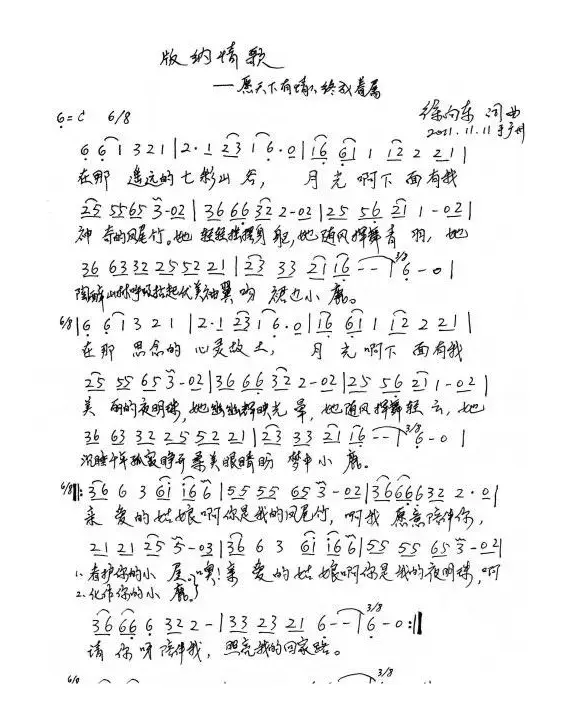 版纳情歌
——愿天下有情人终成眷属
6=C 6/8 徐向东 词曲
2011.11.11于广州
6 6 1 3 2 1 | 2·1 2 3 1 6·0 | 1 6 6 1 1 1 2 2 2 1 |
在那 遥远的七彩山谷， 月光啊下面有我
2 5 5 5 6 5 3 - 0 2 | 3 6 6 6 3 2 2 - 0 2 | 2 5 5 6 2 1 1 - 0 2 |
神奇的凤尾竹。她轻轻摇摆身躯，她随风挥舞青羽，她
3 6 6 3 3 2 2 5 5 2 2 1 | 2 3 3 3 2 1 1 6 - - | 3/8 6 - 0 |
陶醉山林呼吸抬起优美袖翼哟 小鹿。
6/8 | 6 6 1 3 2 1 | 2·1 2 3 1 6·0 | 1 6 6 1 1 1 2 2 2 1 |
在那 思念的心灵故土， 月光啊下面有我
2 5 5 5 6 5 3 - 0 2 | 3 6 6 6 3 2 2 - 0 2 | 2 5 5 6 2 1 1 - 0 2 |
美丽的夜明珠，她幽幽辉映光晕，她随风挥舞轻云，她
3 6 6 3 3 2 2 5 5 2 2 1 | 2 3 3 3 2 1 1 6 - - | 3/8 6 - 0 |
沉睡千年孤寂睁开柔美眼睛盼 梦中小鹿。
6/8 ‖: 3 6 6 3 6 1 1 6 6 | 5 5 5 5 6 5 3 - 0 2 | 3 6 6 6 6 3 2 2·0 |
亲爱的姑娘啊你是我的凤尾竹，啊我愿意陪伴你，
2 1 2 1 2 5 5 - 0 3 | 3 6 6 3 6 1 1 6 6 | 5 5 5 5 6 5 3 - 0 2 |
1.看护你的小屋。噢！亲爱的姑娘啊你是我的夜明珠，啊
2.化作你的小鹿。
3 6 6 6 6 3 2 2 - | 3 3 2 3 2 1 6 - - | 3/8 6 - 0 :‖
请你呀陪伴我，照亮我的回家路。
6/8 3/8